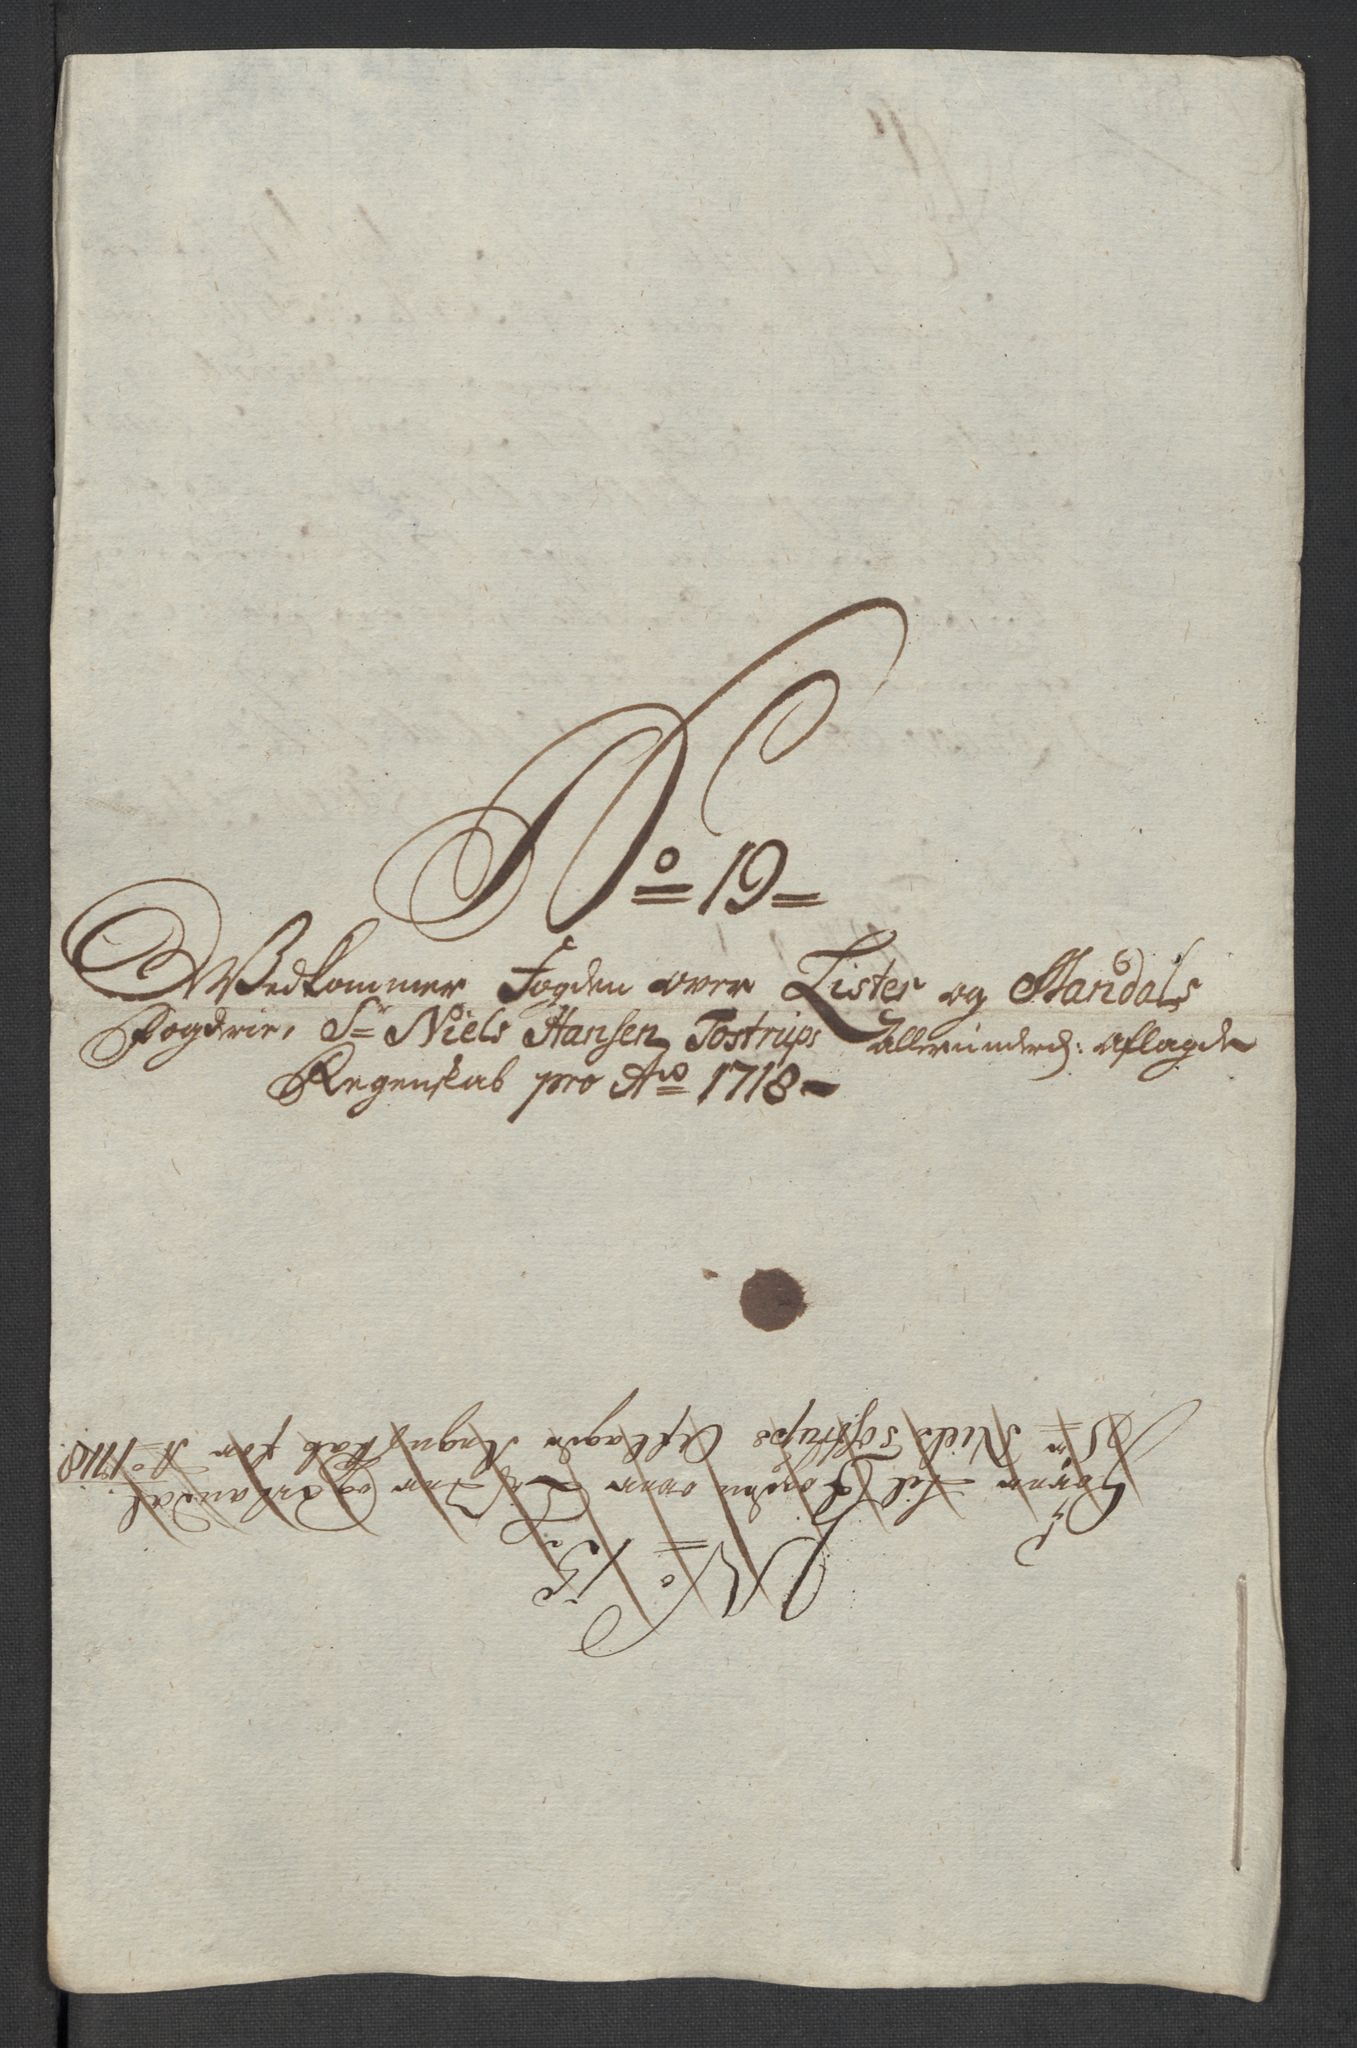 No 19
Vedkommer Fogden over Lister og Mandals
Fogderie, Sr Niels Hansen Tostrups Allerunderd: aflagde
Regenskab pro Ao 1718
No 15
Hører til Fogden over Lister og
Sr Niels Tostrups Aflagde Regnskab for Ao 1718.